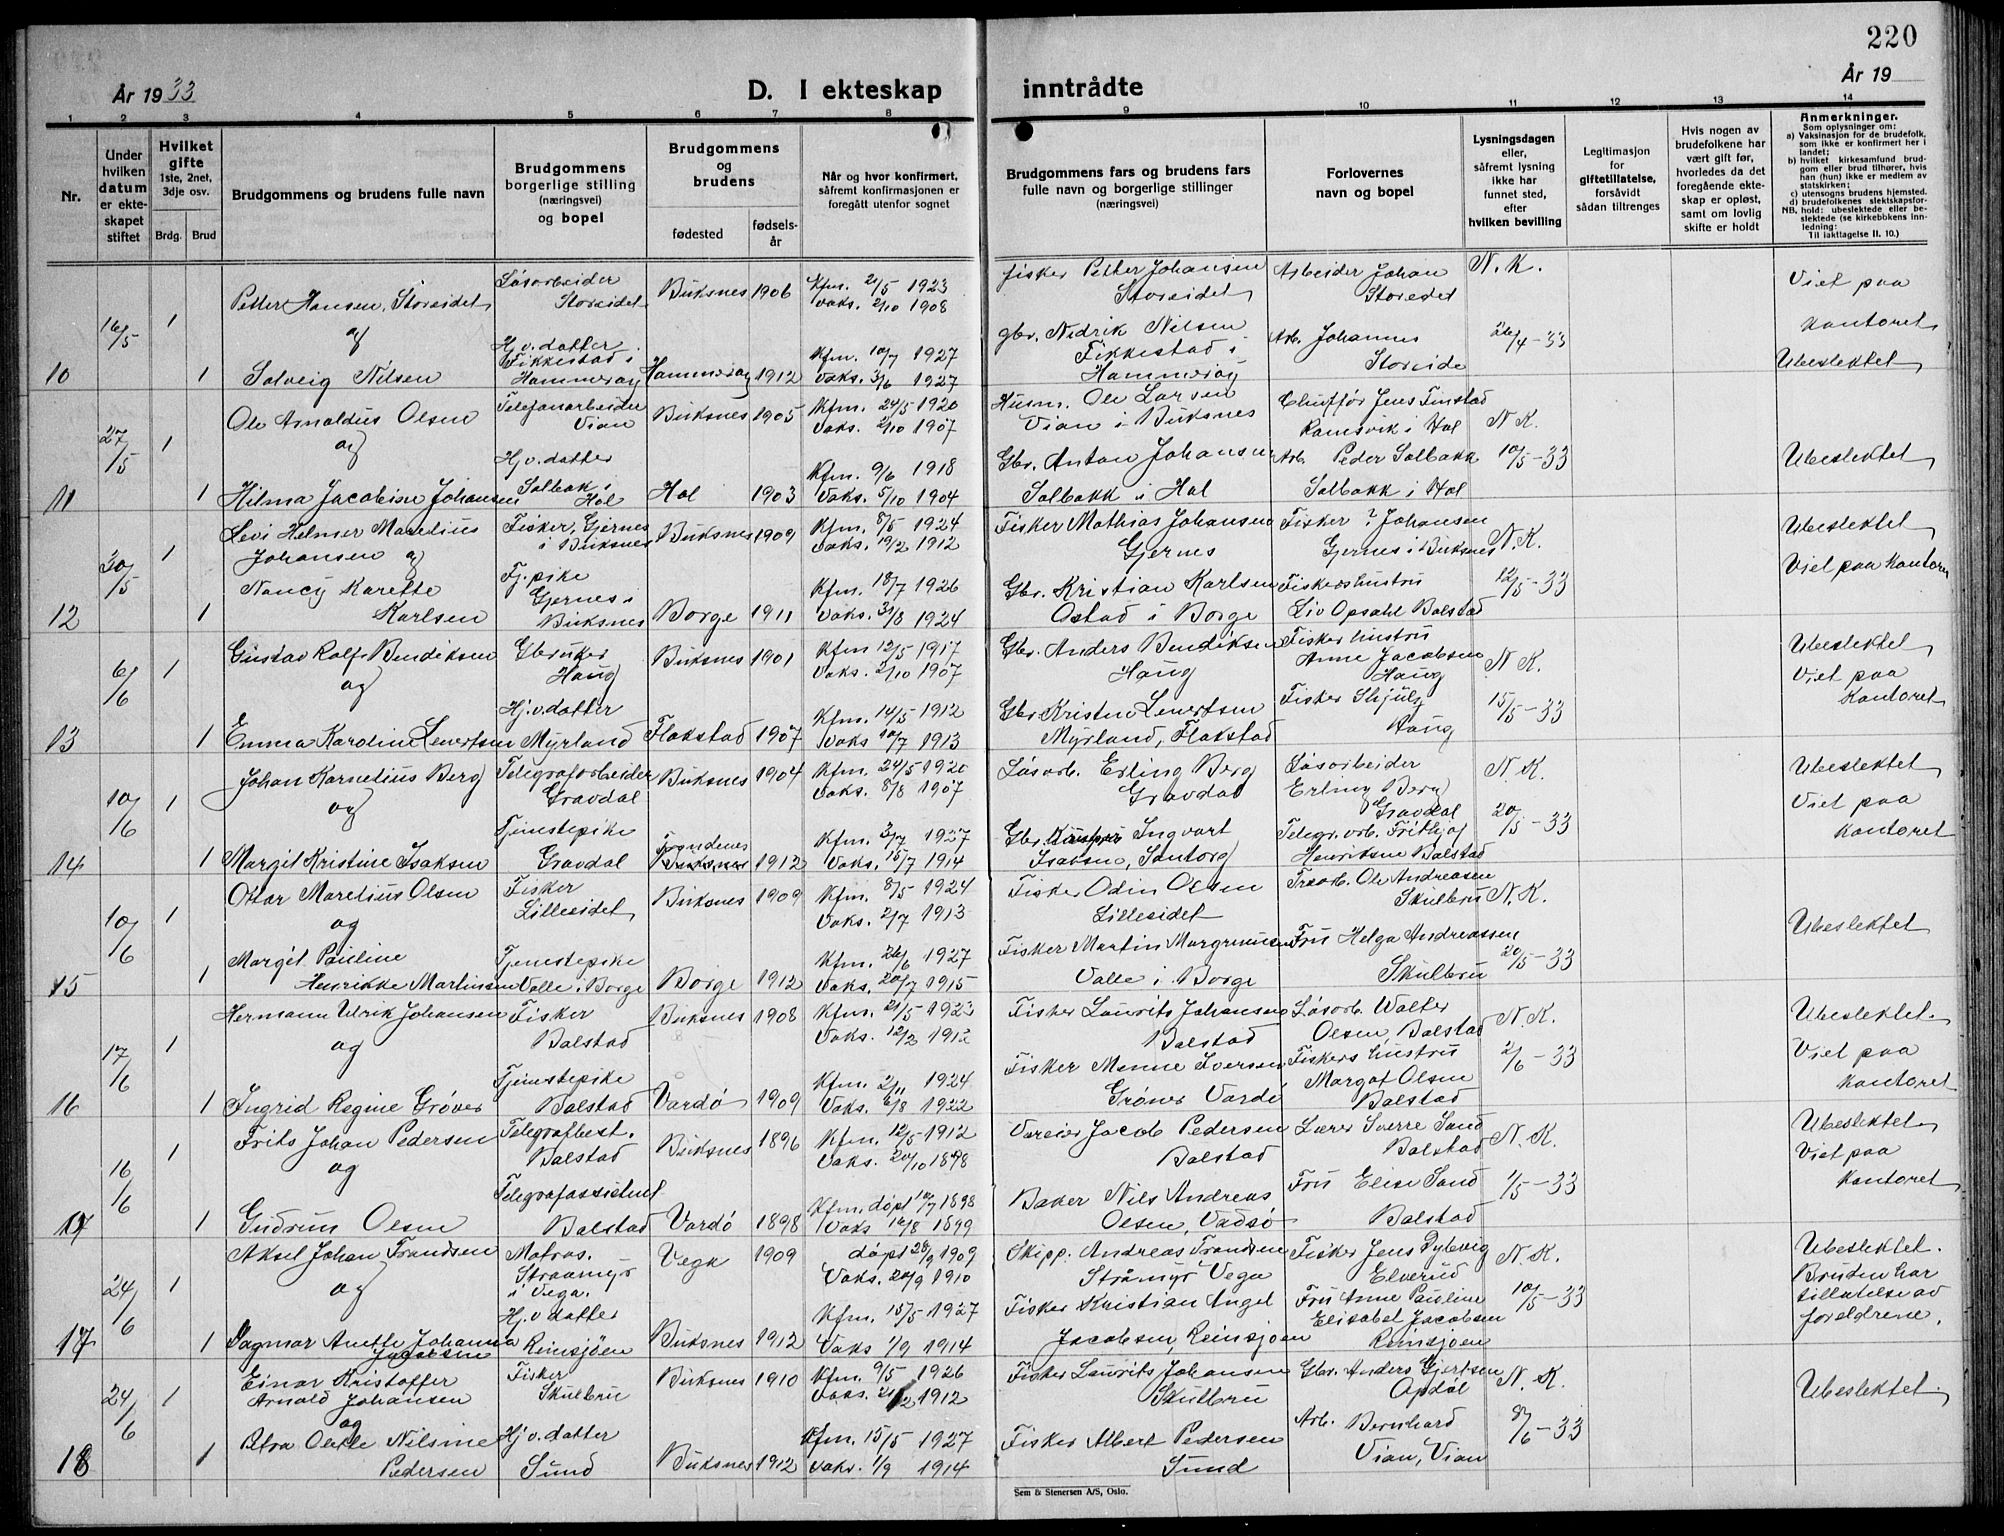 220
År 1933
D. I ekteskap inntrådte
År 19
1 2 3 4 5 6 7 8 9 10 11 12 13 14
Nr.
Under hvilken datum er ekteskapet stiftet
Hvilket gifte 1ste, 2net, 3dje osv.
Brdg. Brud
Brudgommens og brudens fulle navn
Brudgommens borgerlige stilling (næringsvei) og bopel
Brudgommens og brudens
fødested
fødselsår
Når og hvor konfirmert, såfremt konfirmasjonen er foregått utenfor sognet
Brudgommens fars og brudens fars fulle navn og borgerlige stillinger (næringsvei)
Forlovernes navn og bopel
Lysningsdagen eller, såfremt lysning ikke har funnet sted, efter hvilken bevilling
Legitimasjon for giftetillatelse, forsåvidt sådan tiltrenges
Hvis nogen av brudefolkene har vært gift før, hvorledes da det foregående ekteskap er opløst, samt om lovlig skifte er holdt
Anmerkninger.
Som oplysninger om:
a) Vaksinasjon for de brudefolk, som ikke er konfirmert her i landet;
b) hvilket kirkesamfund brudgom eller brud tilhører, hvis han (hun) ikke er medlem av statskirken;
c) utensogns brudens hjemsted.
d) brudefolkenes slektskapsforhold: ubeslektede eller beslektede (se kirkebbkens innledning:
NB. Til iakttagelse II. 10.)
10 16/5 1 Petter Hansen, Storeidet Løsarbeider Storeidet Buksnes 1906 Kfm. 21/5 1923 Vaks. 2/10 1908 fisker Petter Johansen Storeidet Arbeider Johan Storeidet N. K. Viet paa kontoret
og
1 Solveig Nilsen Hj. v. datter Fikkestad i Hammerøy Hammerøy 1912 Kfm. 10/7 1927 Vaks. 3/6 1927 gbr. Nedrik Nilsen Fikkestad i Hammerøy Arb. Johannes Storeide 26/4-33 Ubeslektet
11 27/5 1 Ole Arnoldus Olsen Telefonarbeider Vian Buksnes 1905 Kfm. 24/5 1920 Vaks. 2/10 1907 Husm. Ole Larsen Vian i Buksnes Chuffør Jens Finstad Ramsvik i Hol N. K.
og
1 Hilma Jacobine Johansen Hj. v. datter Solbak i Hol Hol 1903 Kfm. 9/6 1918 Vaks. 5/10 1904 Gbr. Anton Johansen Solbakk i Hol Arb. Peder Solbakk Solbakk i Hol 10/5-33 Ubeslektet
12 30/5 1 Levi Helmer Marelius Johansen og Fisker, Gjernes i Buksnes Buksnes 1909 Kfm. 8/5 1924 Vaks. 19/2 1912 Fisker Mathias Johansen Gjernes Fisker ? Johansen Gjernes i Buksnes N. K. Ubeslektet
1 Nancy Karette Karlsen Tj. pike Gjernes i Buksnes Borge 1911 Kfm. 18/7 1926 Vaks. 31/8 1924 Gbr. Kristian Karlsen Ostad i Borge Fiskershustru Liv Opsahl Balstad 12/5-33 Viet paa Kontoret
13 6/6 1 Gustav Rolf Bendiksen Gbruker Haug Buksnes 1901 Kfm 12/5 1917 Vaks. 2/10 1907 Gbr. Anders Bendiksen Haug Fisker hustru Anne Jacobsen Haug N. K. Ubeslektet Viet paa Kontoret
og
1 Emma Karoline Lenertsen Hj. v. datter Myrland Flakstad 1907 Kfm. 14/5 1912 Vaks 10/7 1913 Gbr. Kristen Lenertsen Myrland, Flakstad Fisker Haug 15/5-33
14 10/6 1 Johan Kornelius Berg Telegrafarbeider Gravdal Buksnes 1904 Kfm. 24/5 1920 Vaks. 8/8 1907 Løsarb. Erling Berg Gravdal Løsarbeider Erling Berg Gravdal N. K. Ubeslektet Viet paa kontoret
og
1 Margit Kristine Isaksen Tjenestepike Gravdal Trondenes Buksnes 1912 Kfm. 3/7 1927 Vaks. 15/7 1914 Gbr. Ingvart Isaksen, Santorg Telegr. arb. Frithjof Henriksen Balstad 20/5-33
15 10/6 1 Ottar Marelius Olsen Fisker Lillesidet Buksnes 1909 Kfm. 8/5 1924 Vaks. 2/7 1913 Fisker Odin Olsen Lilleeidet Ole Andreasen Skulbru N. K. Ubeslektet
og
1 Margit Pauline Henrikke Martinsen Tjenestepike Valle i Borge Borge 1912 Kfm. 26/6 1927 Vaks. 20/7 1915 Fisker Martin Valle i Borge Fru Helga Andreassen Skulbru 20/5-33
16 17/6 1 Hermann Ulrik Johansen Fisker Balstad Buksnes 1908 Kfm. 21/5 1923 Vaks. 12/2 1912 Fisker Laurits Johansen Balstad Løsarb. Walter Olsen, Balstad N. K. Ubeslektet. Viet paa kontoret
og
1 Ingrid Regine Grøner Tjenestepike Balstad Vardø 1909 Kfm. 2/11 1924 Vaks. 6/8 1922 Fisker Menne Iversen Grøner Vardø Fiskers hustru Margot Olsen Balstad 2/6-33
17 16/6 1 Frits Johan Pedersen Telegrafbest. Balstad Buksnes 1896 Kfm. 12/5 1912 Vaks. 20/10 1898 Jacob Pedersen Balstad Lærer Sverre Sand Balstad N. K. Ubeslektet Viet paa kontoret
og
1 Gudrun Olsen Telegrafassistent Balstad Vardø 1898 Kfm. døpt 10/7 1898 Vaks 16/8 1899 Baker Nils Andreas Olsen, Vadsø Fru Elise Sand Balstad 1/5-33
17 24/6 1 Aksel Johan Trondsen Matros. Straamyr i Vega. Vega 1909 døpt 26/9 1909 Vaks. 20/9 1910 Skipp. Andreas Trondsen Stråmyr Vega Fisker Jens Dybvig Elverud N. K. Ubeslektet. Bruden har tillatelse av foreldrene.
og
1 Dagmar Anette Johanna Jacobsen Hj. v datter Reinsjøen Buksnes 1912 Kfm. 15/5 1927 Vaks 1/9 1914 Fisker Kristian Angel Jacobsen, Reinsjøen Fru Anne Pauline Elisabet Jacobsen Reinsjøen 10/5-33
18 24/6 1 Einar Kristoffer Arnold Johansen Fisker Skulbru Buksnes 1910 Kfm. 9/5 1926 Vaks. 21/2 1912 Fisker Laurits Johansen Skulbru Gbr. Anders Gjertsen Opdøl N. K. Ubeslektet.
og
1 Petra Oletle Nilsine Pedersen Hj. v. datter Sund Buksnes 1912 Kfm. 15/5 1927 Vaks. 1/9 1914 Fisker Albert Pedersen Sund Arb. Bernhard Vian, Vian 8/6-33
Sem & Stenersen A/S, Oslo.